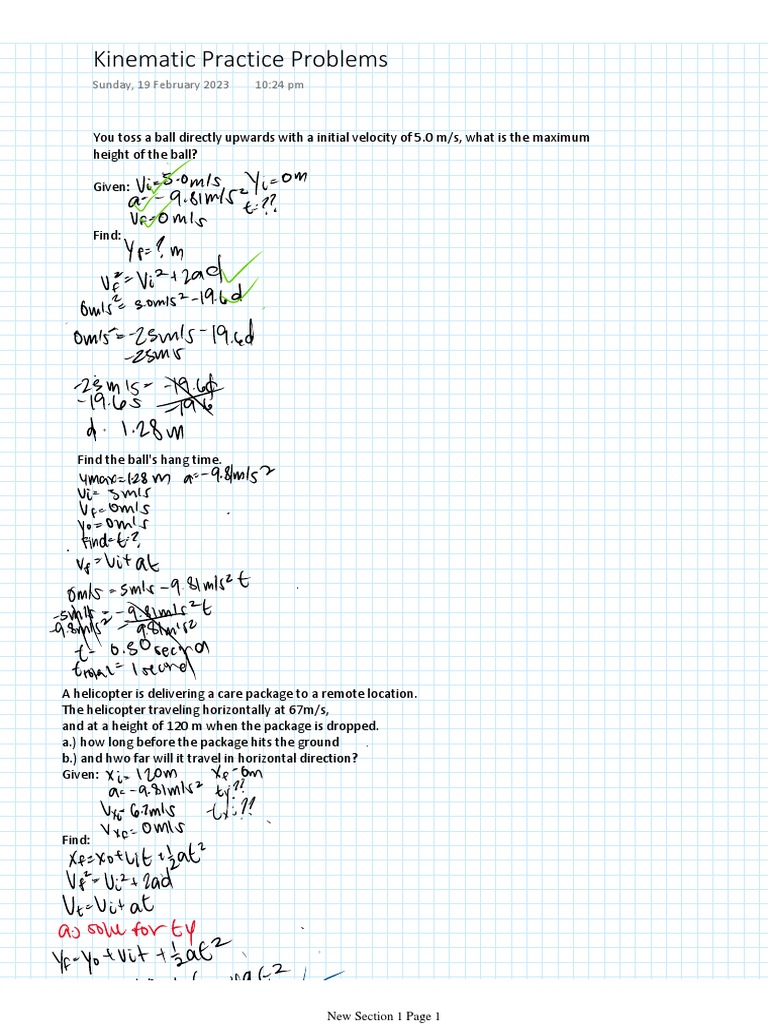 Kinematic Practice Problems
Sunday, 19 February 2023 10:24 pm
You toss a ball directly upwards with a initial velocity of 5.0 m/s, what is the maximum
height of the ball?
Given: Vi=5.0m/s Yi=0m
a=-9.81m/s² t=??
Vf=0m/s
Find:
Yf=? m
Vf²=Vi²+2ad
0m/s²=5.0m/s²-19.6d
0m/s=-25m/s-19.6d
-25m/s
-25m/s=-19.6d
-19.6s -19.6
d= 1.28m
Find the ball's hang time.
ymax=1.28m a=-9.81m/s²
Vi=5m/s
Vf=0m/s
yo=0m/s
Find=t=?
Vf=Vi+at
0m/s=5m/s-9.81m/s²t
-5m/s=-9.81m/s²t
-9.8m/s² 9.81m/s²
t= 0.50second
ttotal=1second
A helicopter is delivering a care package to a remote location.
The helicopter traveling horizontally at 67m/s,
and at a height of 120 m when the package is dropped.
a.) how long before the package hits the ground
b.) and hwo far will it travel in horizontal direction?
Given: xi=120m xf=0m
a=-9.81m/s² ty??
Vxi=67m/s tx=??
Vxf=0m/s
Find:
xf=xo+Vit+½at²
Vf²=Vi²+2ad
Vf=Vi+at
a.) solve for ty
yf=yo+Vit+½at²
New Section 1 Page 1